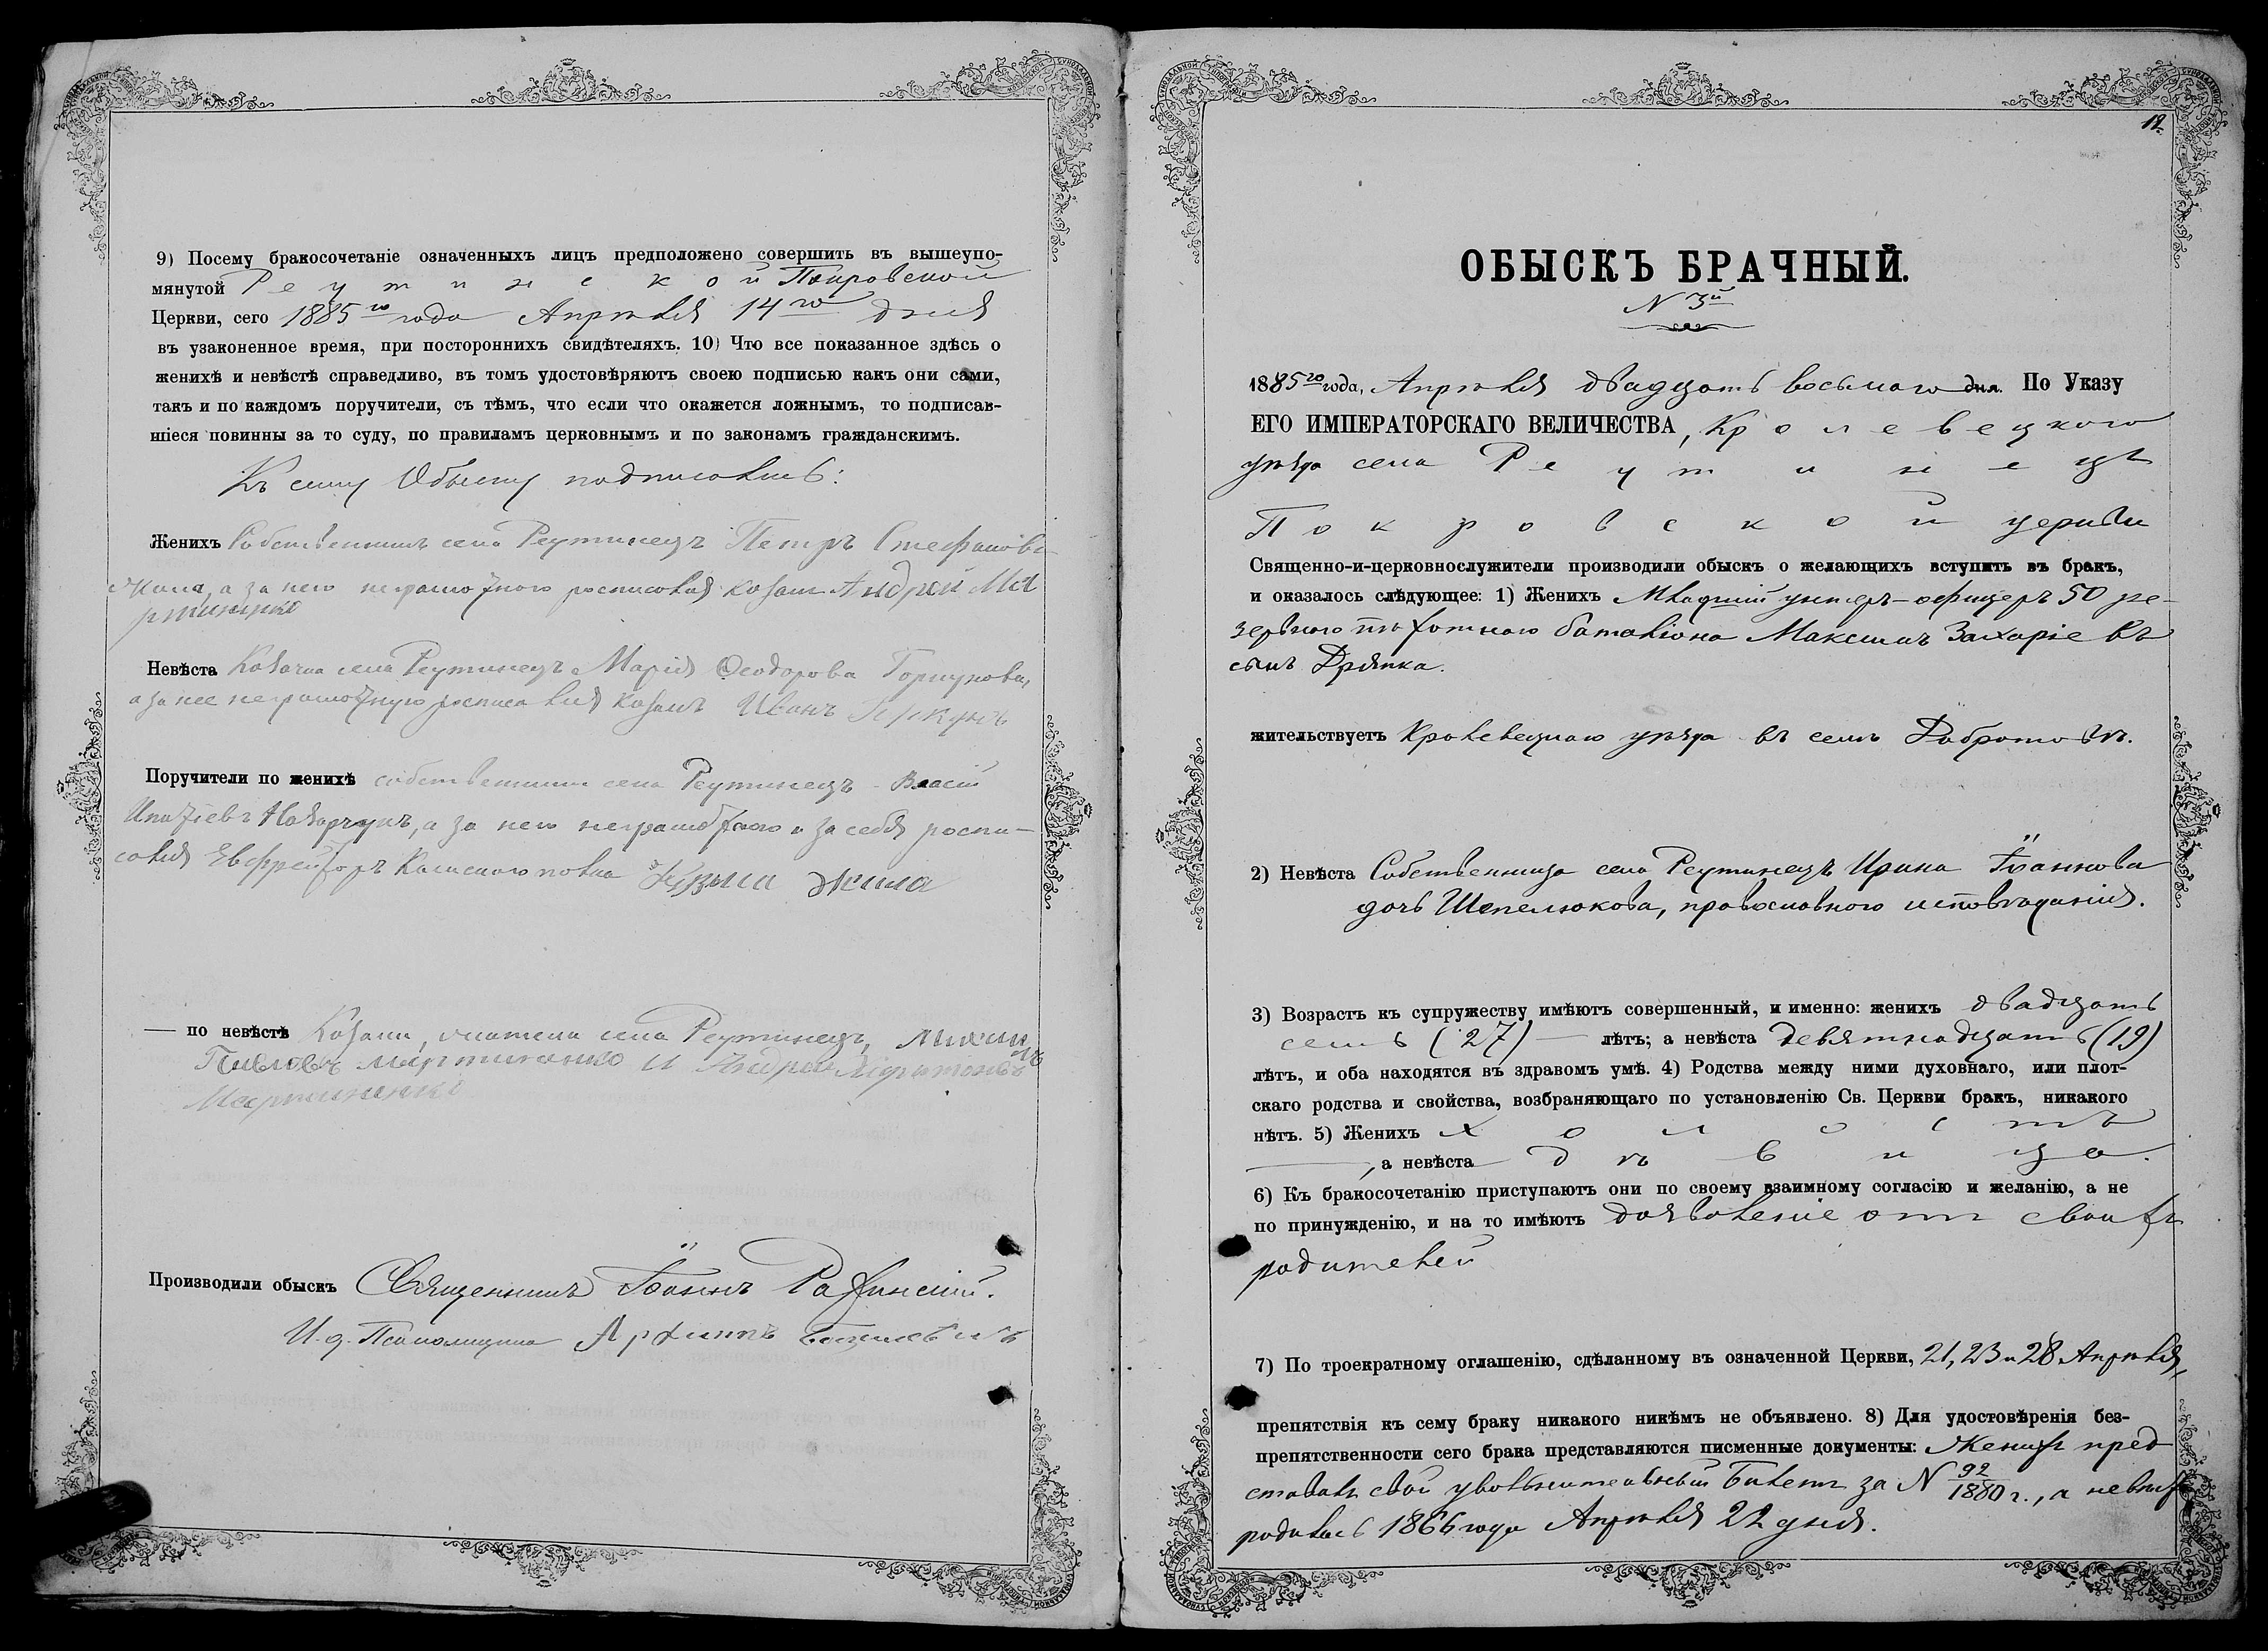 9) Посему бракосочетаніе означенныхъ лицъ предположено совершить въ вышеупо-
мянутой Реутинской Покровской
Церкви, сего 1885го года Апрѣля 14го дня
въ узаконенное время, при постороннихъ свидѣтеляхъ. 10) Что все показанное здѣсь о
женихѣ и невѣстѣ справедливо, въ томъ удостовѣряютъ своею подписью какъ они сами,
такъ и по каждомъ поручители, съ тѣмъ, что если что окажется ложнымъ, то подписав-
шіеся повинны за то суду, по правиламъ церковнымъ и по законамъ гражданскимъ.
Къ сему Обыску подписались:
Женихъ Собственникъ села Реутинецъ Петръ Стефановъ
Жила, а за него неграмотного росписался козакъ Андрей Ма
ртиненко
Невѣста Козачка села Реутинецъ Марія Ѳеодорова Горкунова,
а за нее неграмотную росписался козакъ Иванъ
Поручители по женихѣ собственники села Реутинецъ Власій
Игнатіевъ а за него неграмотного и за себя роспи-
сался Ефрейторъ полка Кузьма Жила
— по невѣстѣ Козаки, жители села Реутинецъ, Михаилъ
Павловъ Мартиненко и Андрей
Мартиненко
Производили обыскъ Священникъ Іоаннъ
И. д. Псаломщика Архиппъ
12.
ОБЫСКЪ БРАЧНЫЙ.
N 3й
1885го года, Апрѣля двадцать восьмаго дня. По Указу
ЕГО ИМПЕРАТОРСКАГО ВЕЛИЧЕСТВА, Кролевецкого
уѣзда села Реутинецъ
Покровской церкви
Священно-и-церковнослужители производили обыскъ о желающихъ вступить въ бракъ,
и оказалось слѣдующее: 1) Женихъ Младшій унтеръ-офицеръ 50 ре-
зервного пѣхотнаго баталіона Максимъ Захаріевъ
сынъ Дряпка.
жительствуетъ Кролевецкаго уѣзда въ селѣ Добротовѣ.
2) Невѣста Собственница села Реутинецъ Ирина Іоаннова
дочь Шепелюкова, православного исповѣданія.
3) Возрастъ къ супружеству имѣютъ совершенный, и именно: женихъ двадцать
семь (27) — лѣтъ; а невѣста девятнадцать (19)
лѣтъ, и оба находятся въ здравомъ умѣ. 4) Родства между ними духовнаго, или плот-
скаго родства и свойства, возбраняющаго по установленію Св. Церкви бракъ, никакого
нѣтъ. 5) Женихъ холостъ
, а невѣста дѣвица.
6) Къ бракосочетанію приступаютъ они по своему взаимному согласію и желанію, а не
по принужденію, и на то имѣютъ дозволеніе отъ своихъ
родителей
7) По троекратному оглашенію, сдѣланному въ означенной Церкви, 21, 23 и 28 Апрѣля,
препятствія къ сему браку никакого никѣмъ не объявлено. 8) Для удостовѣренія без-
препятственности сего брака представляются писменные документы: Женихъ пред
ставилъ свой увольнительный билетъ за N 92/1880 г., а невѣста
родилась 1866 года Апрѣля 22 дня.